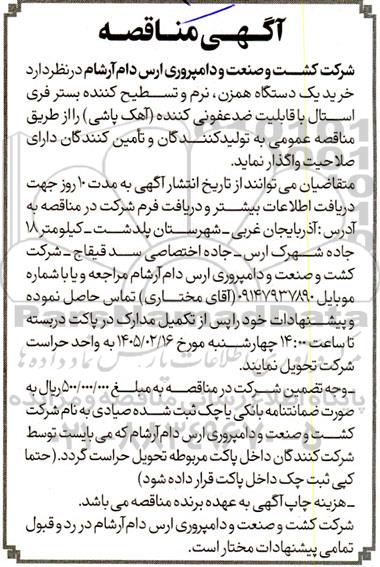 آگهی مناقصه
شرکت کشت و صنعت و دامپروری ارس دام آرشام در نظر دارد
خرید یک دستگاه همزن، نرم و تسطیح کننده بستر فری
استال با قابلیت ضدعفونی کننده (آهک پاشی) را از طریق
مناقصه عمومی به تولیدکنندگان و تأمین کنندگان دارای
صلاحیت واگذار نماید.
متقاضیان می توانند از تاریخ انتشار آگهی به مدت ۱۰ روز جهت
دریافت اطلاعات بیشتر و دریافت فرم شرکت در مناقصه به
آدرس : آذربایجان غربی ـ شهرستان پلدشت ـ کیلومتر ۱۸
جاده شهرک ارس ـ جاده اختصاصی سد قیقاج ـ شرکت
کشت و صنعت و دامپروری ارس دام آرشام مراجعه و یا با شماره
موبایل ۰۹۱۴۷۹۳۷۸۹۰ (آقای مختاری) تماس حاصل نموده
و پیشنهادات خود را پس از تکمیل مدارک در پاکت دربسته
تا ساعت ۱۴:۰۰ چهارشنبه مورخ ۱۴۰۵/۰۲/۱۶ به واحد حراست
شرکت تحویل نمایند.
ـ وجه تضمین شرکت در مناقصه به مبلغ ۵۰۰/۰۰۰/۰۰۰ ریال به
صورت ضمانتنامه بانکی یا چک ثبت شده صیادی به نام شرکت
کشت و صنعت و دامپروری ارس دام آرشام که می بایست توسط
شرکت کنندگان داخل پاکت مربوطه تحویل حراست گردد. (حتما
کپی ثبت چک داخل پاکت قرار داده شود)
ـ هزینه چاپ آگهی به عهده برنده مناقصه می باشد.
شرکت کشت و صنعت و دامپروری ارس دام آرشام در رد و قبول
تمامی پیشنهادات مختار است.